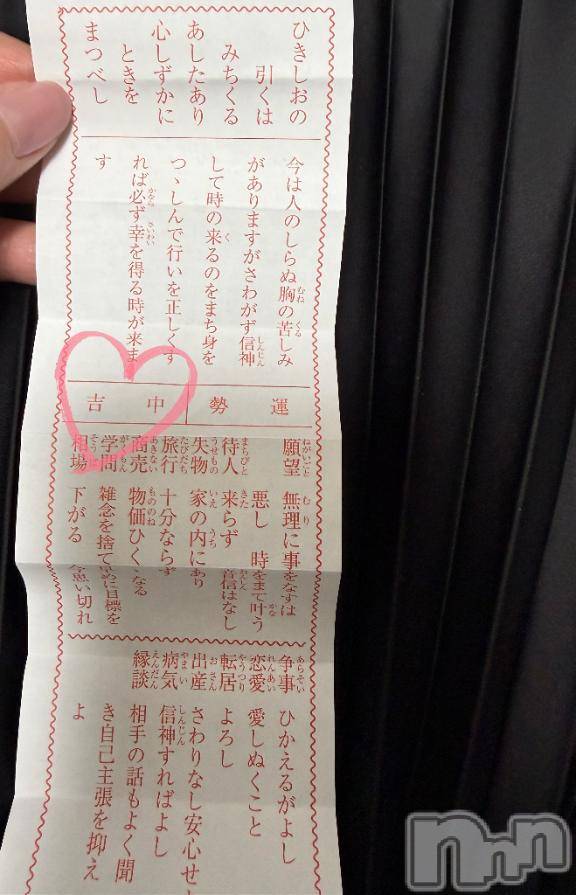 ひきしおの
引くは
みちくる
あしたあり
心しずかに
ときを
まつべし
今は人のしらぬ胸の苦しみ
がありますがさわがず信神
して時の来るのをまち身を
つゝしんで行いを正しくす
れば必ず幸を得る時が来ま
す
運勢 中吉
願望 無理に事をなすは
悪し 時をまて叶う
待人 来らず 音信はなし
失物 家の内にあり
旅行 十分ならず
商売 物価ひくくなる
学問 雑念を捨て 目標を
相場 下がる 今思い切れ
争事 ひかえるがよし
恋愛 愛しぬくこと
転居 よろし
出産 さわりなし安心せ
病気 信神すればよし
縁談 相手の話もよく聞
き自己主張を抑え
よ
nnn